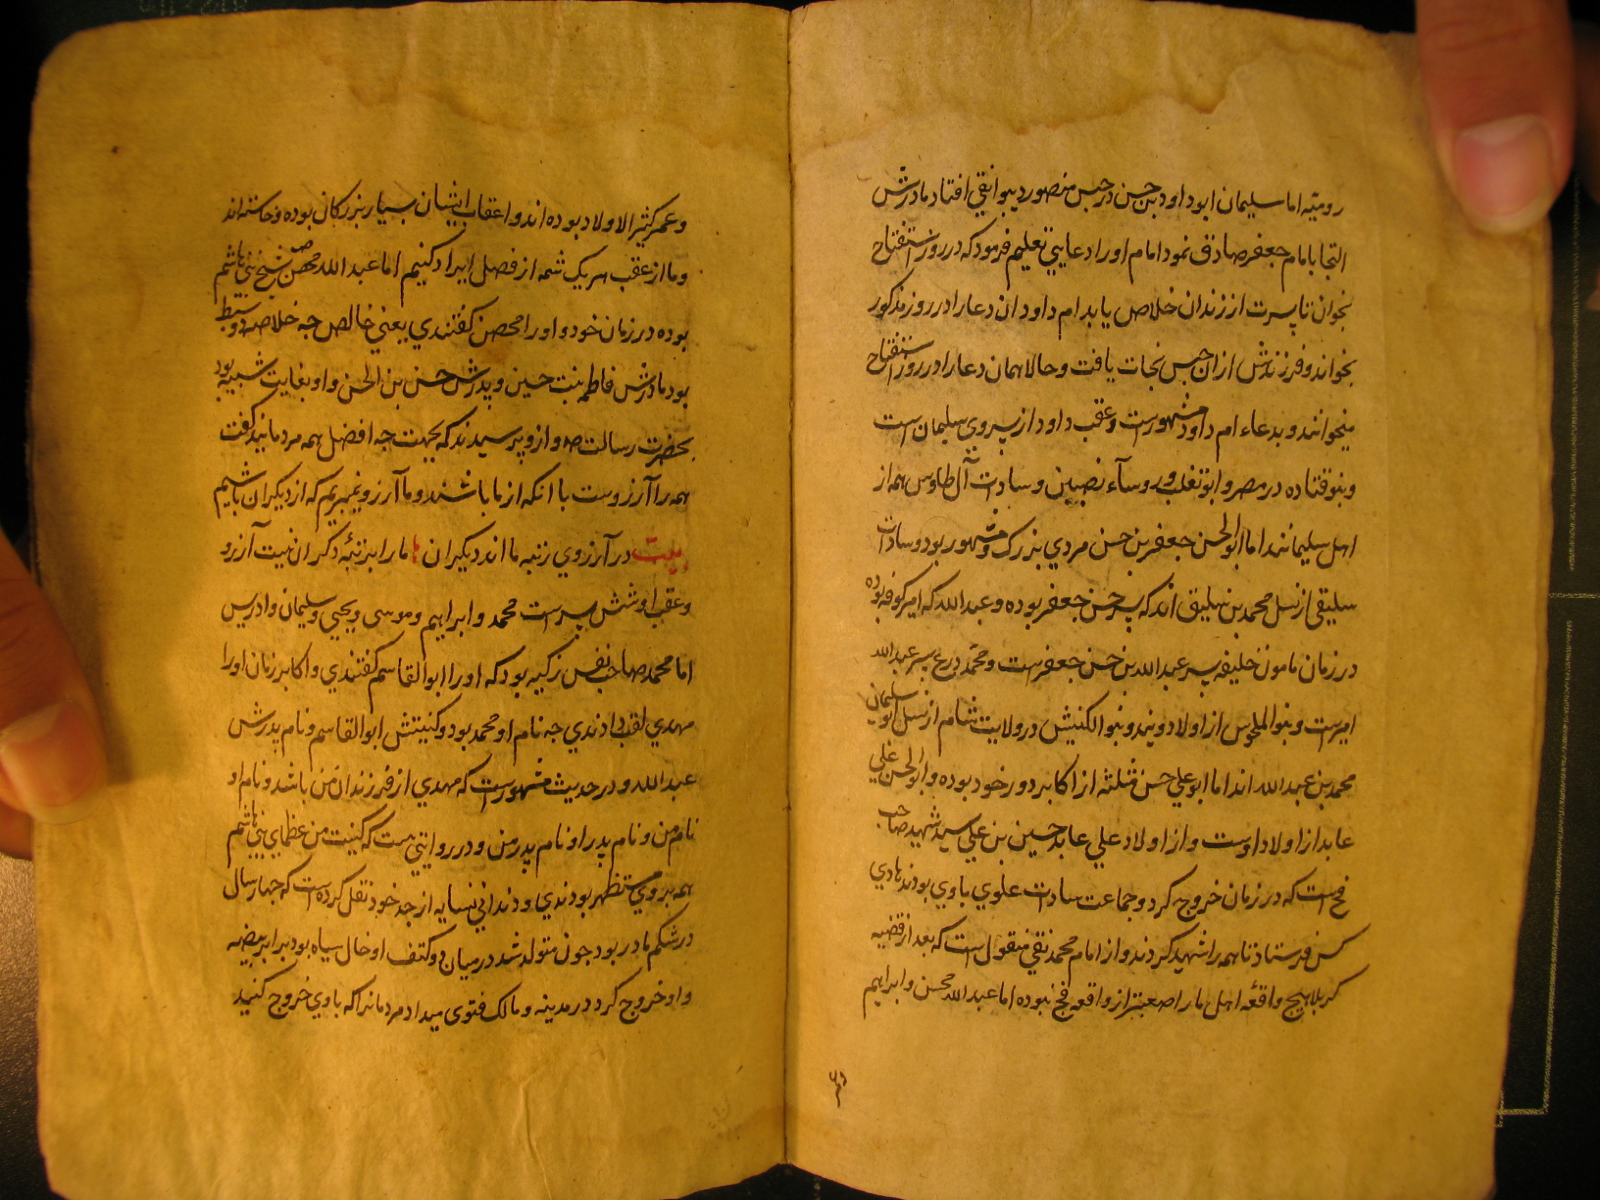 رومیّه اما سلیمان ابو داود بن حسن در حبس منصور دیبوانقی افتاد مادرش
التجا بامام جعفر صادق نمود امام او را دعایی تعلیم فرمود که در روز استفتاح
بخوان تا پسرت از زندان خلاص یابد ام داود ان دعا را در روز مذکور
بخواند و فرزندش از ان حبس نجات یافت و حالا همان دعا را در روز استفتاح
میخوانند و بدعاء ام داود مشهورست و عقب داود از پسر وی سلیمان است
و بنو قتاده در مصر و ابو تغلب و روساء نصیبین و سادات آل طاوس همه از
اهل سلیمانند اما ابو الحسن جعفر بن حسن مردی بزرک و مشهور بود و سادات
سلیقی از نسل محمد بن سلیق اند که پسر حسن جعفر بوده و عبد الله که امیر کوفه بوده
در زمان مامون خلیفه پسر عبد الله بن حسن جعفرست و محمد درع پسر عبد الله
امیرست و بنو الملحوس از اولاد ویند و بنو الکنیش در ولایت شام از نسل ابو سلیمان
محمد بن عبد الله اند اما ابو علی حسن مثلثه از اکابر دور خود بوده و ابو الحسن علی
عابد از اولاد اوست و از اولاد علی عابد حسین بن علی سید شهید صاحب
فخ است که در زمان خروج کرد و جماعت سادات علوی با وی بودند هادی
کس فرستاد تا همه را شهید کردند و از امام محمد نقی منقول است که بعد از قضیه
کربلا هیچ واقعه اهل ما را صعبتر از واقعه فخ نبوده اما عبد الله محسن و ابراهیم
و عمر کثیر الاولاد بوده اند و اعقاب ایشان بسیار بزرکان بوده و هستند
و ما از عقب هر یک شمه از فصل ایراد کنیم اما عبد الله محصن شیخ بنی هاشم
بوده در زمان خود و او را محصن کفتندی یعنی خالص جه خلاصه دو سبط
بود مادرش فاطمه بنت حسین و پدرش حسن بن الحسن و او بغایت شبیه بود
بحضرت رسالت صه و از و پرسیدند که بجهت جه افضل همه مردمانید کفت
همه را آرزوست با انکه از ما باشند و ما آرزو نمیبریم که از دیکران باشیم
بیت در آرزوی رتبه ما اند دیکران ما را برتبهٔ دکران نیست آرزو
و عقب او شش پسرست محمد و ابراهیم و موسی و یحیی و سلیمان و ادریس
اما محمد صاحب نفس زکیه بود که او را ابو القاسم کفتندی و اکابر زمان او را
مهدی لقب دادندی جه نام او محمد بود و کنیتش ابو القاسم و نام پدرش
عبد الله و در حدیث مشهورست که مهدی از فرزندان من باشد و نام او
نام من و نام پدر او نام پدر من و در روایتی هست که کنیت من عظمای بنی هاشم
همه بر وی مستظهر بودندی و دندانی نسابه از جد خود نقل کرده است که جهار سال
در شکم مادر بود جون متولد شد در میان دو کتف او خال سیاه بود برابر بیضه
و او خروج کرد در مدینه و مالک فتوی میداد مردمانرا که با وی خروج کنید